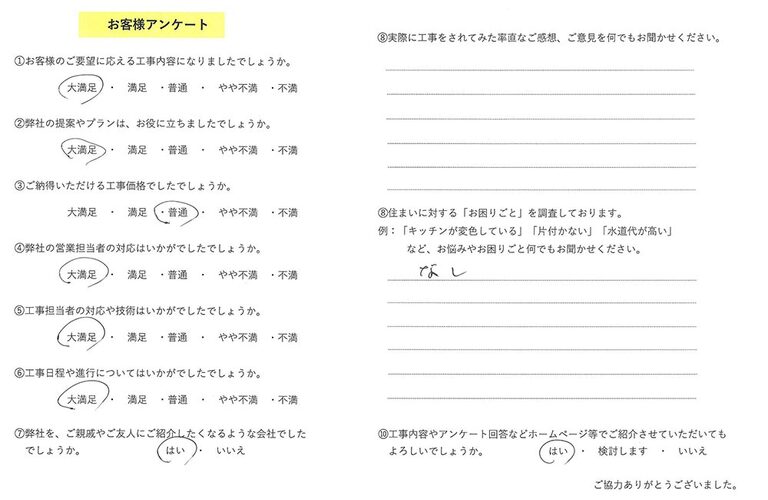 お客様アンケート
①お客様のご要望に応える工事内容になりましたでしょうか。
大満足 ・ 満足 ・普通 ・ やや不満 ・不満
②弊社の提案やプランは、お役に立ちましたでしょうか。
大満足 ・ 満足 ・普通 ・ やや不満 ・不満
③ご納得いただける工事価格でしたでしょうか。
大満足 ・ 満足 ・普通 ・ やや不満 ・不満
④弊社の営業担当者の対応はいかがでしたでしょうか。
大満足 ・ 満足 ・普通 ・ やや不満 ・不満
⑤工事担当者の対応や技術はいかがでしたでしょうか。
大満足 ・ 満足 ・普通 ・ やや不満 ・不満
⑥工事日程や進行についてはいかがでしたでしょうか。
大満足 ・ 満足 ・普通 ・ やや不満 ・不満
⑦弊社を、ご親戚やご友人にご紹介したくなるような会社でした
でしょうか。 はい ・ いいえ
⑧実際に工事をされてみた率直なご感想、ご意見を何でもお聞かせください。
⑧住まいに対する「お困りごと」を調査しております。
例：「キッチンが変色している」「片付かない」「水道代が高い」
など、お悩みやお困りごと何でもお聞かせください。
なし
⑩工事内容やアンケート回答などホームページ等でご紹介させていただいても
よろしいでしょうか。 はい ・ 検討します ・ いいえ
ご協力ありがとうございました。